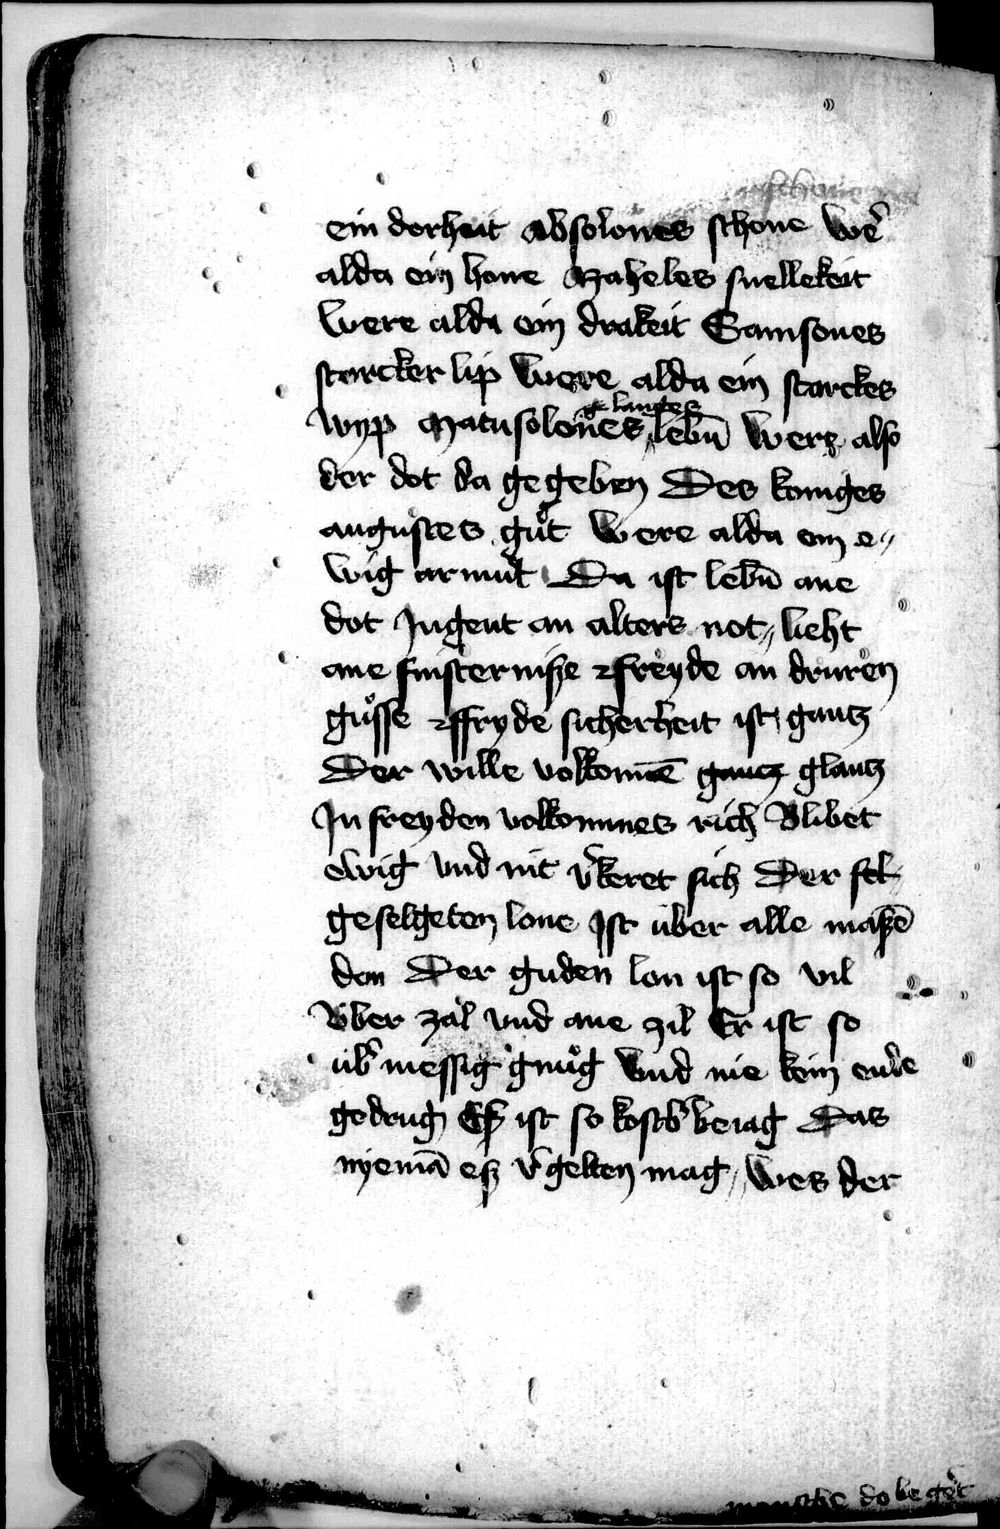 ein dorheit absolones schone we͛
alda ein hone Raheles snellekeit
were alda ein drakeit Samsones
starcker lip were alda ein starckes
wyp Matusolones langes lebn̄ were also
der dot da gegeben Des koniges
augustes gůt were alda ein e〃
wig armůt Da ist lebn̄ ane
dot Jugent an alters not〃 lieht
ane finsternisze freyde an druren
gůsse ffryde sicherheit ist gantz
Der wille volkomē gantz glantz
Jn freyden volkommes rich Blibet
ewig vnd nit v͛keret sich Der sel
geselgeten lone Jst über alle maszē
don Der guden lon ist so vil
Über zal vnd ane zil Er ist so
üb͛ messig gnůg vnd nie kein ende
gedrug Esz ist so kostb͛ beiag Das
nyemā esz v͛gelten mag〃 wes der
mensche do beger͛t